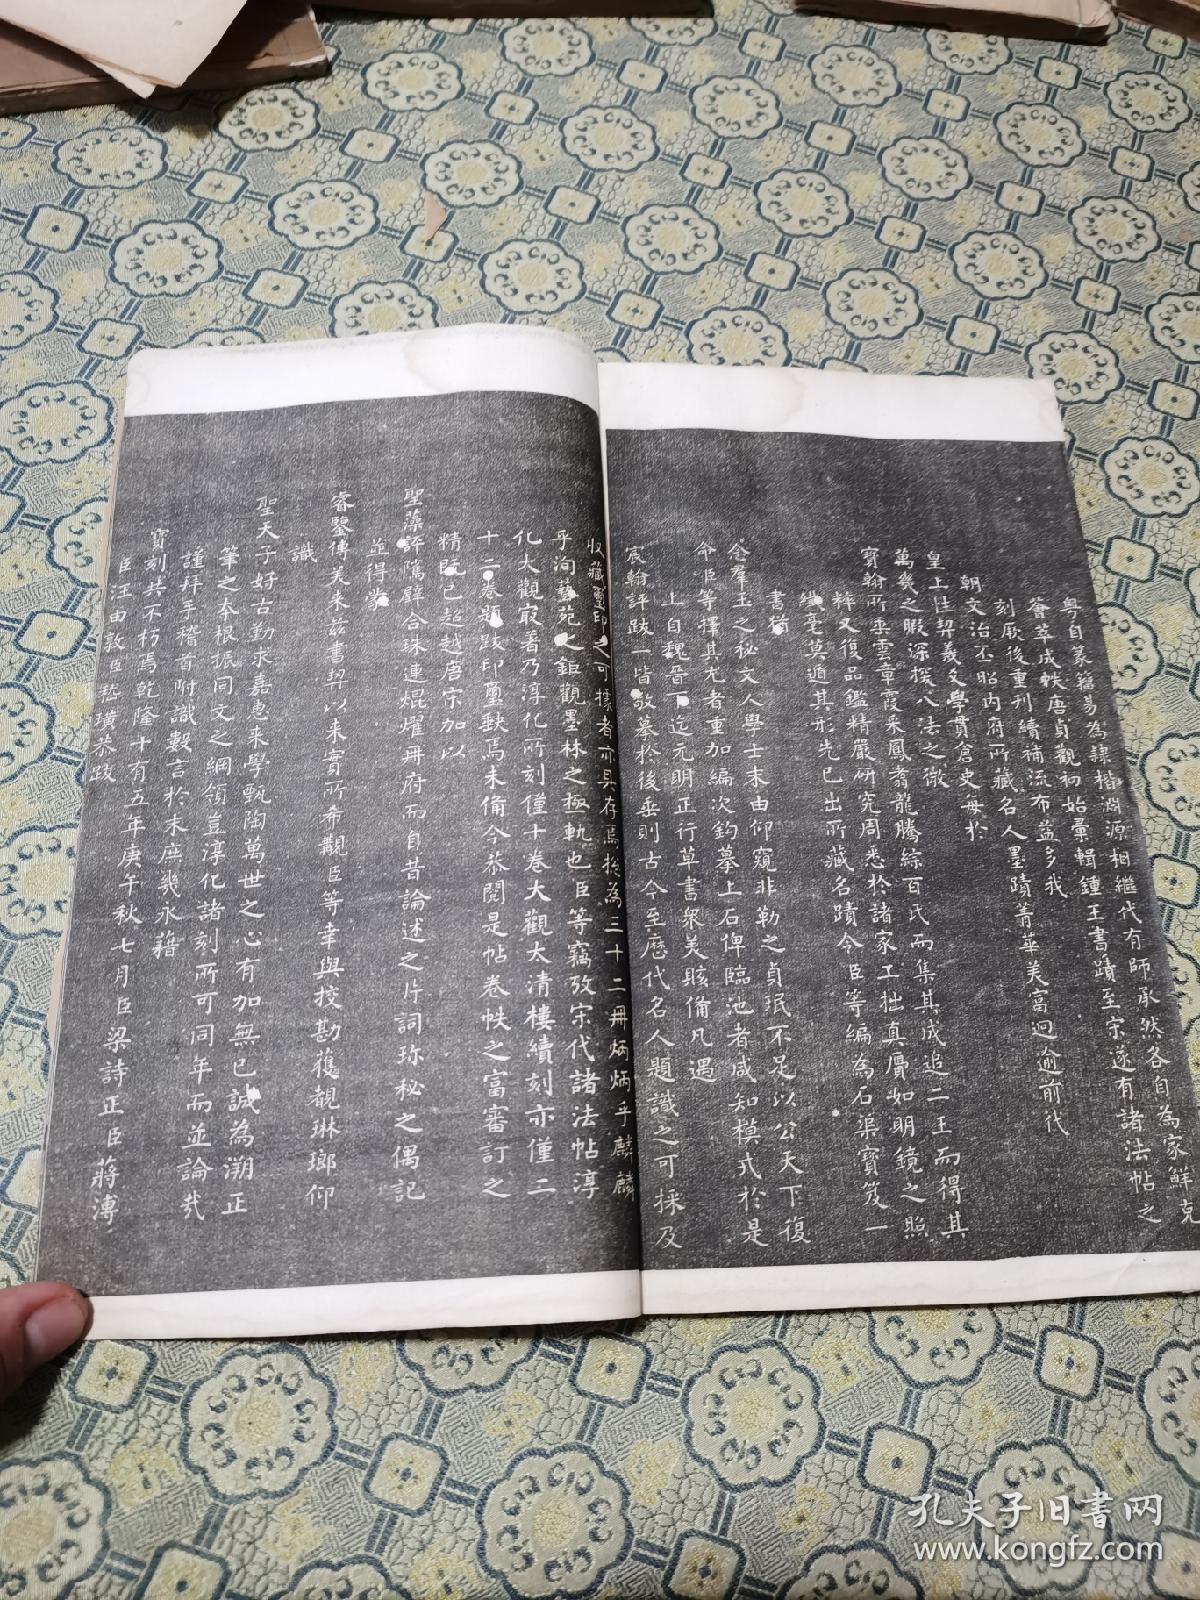 粤自篆籀易為隷楷淵源相繼代有師承然各自為家鮮克
薈萃成帙唐貞觀初始彙輯鍾王書蹟至宗遂有諸法帖之
刻厥後重刊續補流布益多我
朝文治丕昭内府所藏名人墨蹟菁華美富迥逾前代
皇上性契羲文學貫倉史毎於
萬幾之暇深探八法之微
寳翰所乗雲章霞采鳳翥龍騰綜百氏而集其成追二王而得其
粹又復品鑑精嚴研究周悉於諸家工拙真贋如明鏡之照
纎毫莫遁其形先已出所藏名蹟令臣等編為石渠寳笈一
書猶
念羣玉之秘文人學士末由仰窺非勒之貞珉不足以公天下復
命臣等擇其尤者重加編次鈎摹上石俾臨池者咸知模式於是
上自魏晉下迄元明正行草書衆美賅俻凡遇
宸翰評跋一皆敬摹於後垂則古今至歴代名人題識之可採及
收藏璽印之可據者亦具存焉揔為三十二冊炳炳乎麟麟
乎洵藝苑之鉅觀墨林之極軌也臣等竊攷宋代諸法帖淳
化大觀㝡著乃淳化所刻僅十巻大觀太清樓續刻亦僅二
十二巻題跋印璽缺焉未俻今恭閲是帖巻帙之富審訂之
精既已超越唐宋加以
聖藻評隲辟合珠連焜燿冊府而自昔論述之片詞珎秘之偶記
並得蒙
睿鑒傳美来兹書契以来實所希覯臣等幸與挍勘獲覩琳瑯仰
識
聖天子好古勤求嘉惠来學甄陶萬世之心有加無已誠為溯正
筆之本根振同文之綱領豈淳化諸刻所可同年而並論㢤
謹拜手稽首附識數言於末庶㡬永藉
寳刻共不朽焉乾隆十有五年庚午秋七月臣梁詩正臣蔣溥
臣汪由敦臣嵇璜恭跋
孔夫子旧书网
www.kongfz.com